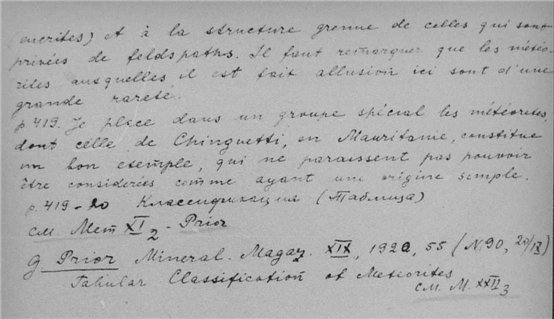 eucrites) et à la structure grenue de celles qui sont
privées de feldspaths. Il faut remarquer que les météo-
rites auxquelles il est fait allusion ici sont d'une
grande rareté.
p. 419. Je place dans un groupe spécial les météorites,
dont celle de Chinguetti, en Mauritanie, constitue
un bon exemple, qui ne paraissent pas pouvoir
être considérées comme ayant une origine simple.
p. 419-20 Классификация (Таблица)
см. Мет XI₂ - Prior
G Prior Mineral. Magaz. XIX, 1920, 55 (N. 90, 20/IX)
Tabular Classification of Meteorites
см. М. XXII₃